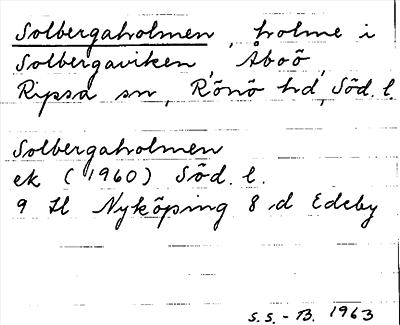 Solbergaholmen, holme i
Solbergaviken, Åboö,
Ripsa sn, Rönö hd, Söd. l.
Solbergaholmen
ek (1960) Söd. l.
9 H Nyköping 8 d Edeby
S.S. - B. 1963